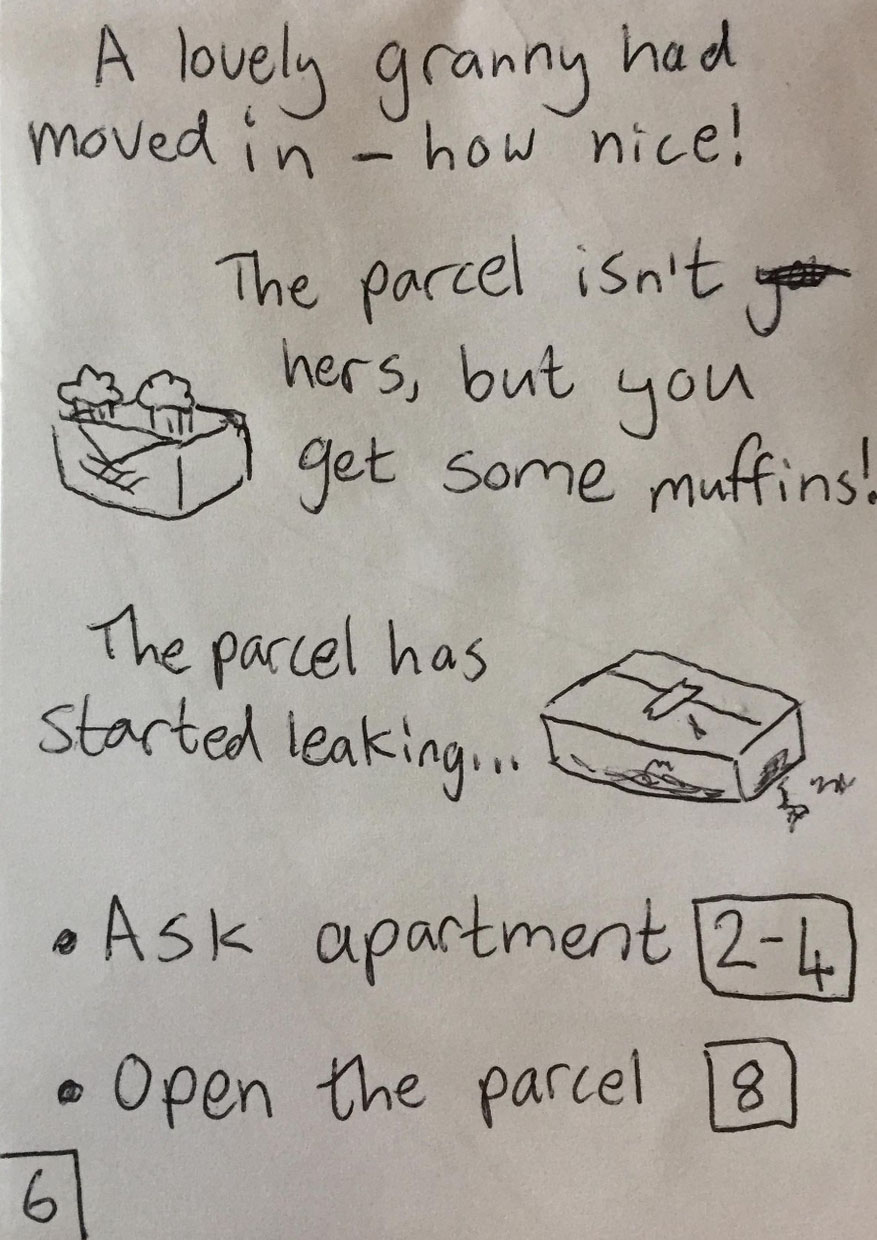 A lovely granny had
moved in - how nice!
The parcel isn't
hers, but you
get some muffins!
The parcel has
started leaking...
• Ask apartment 2-4
• Open the parcel 8
6